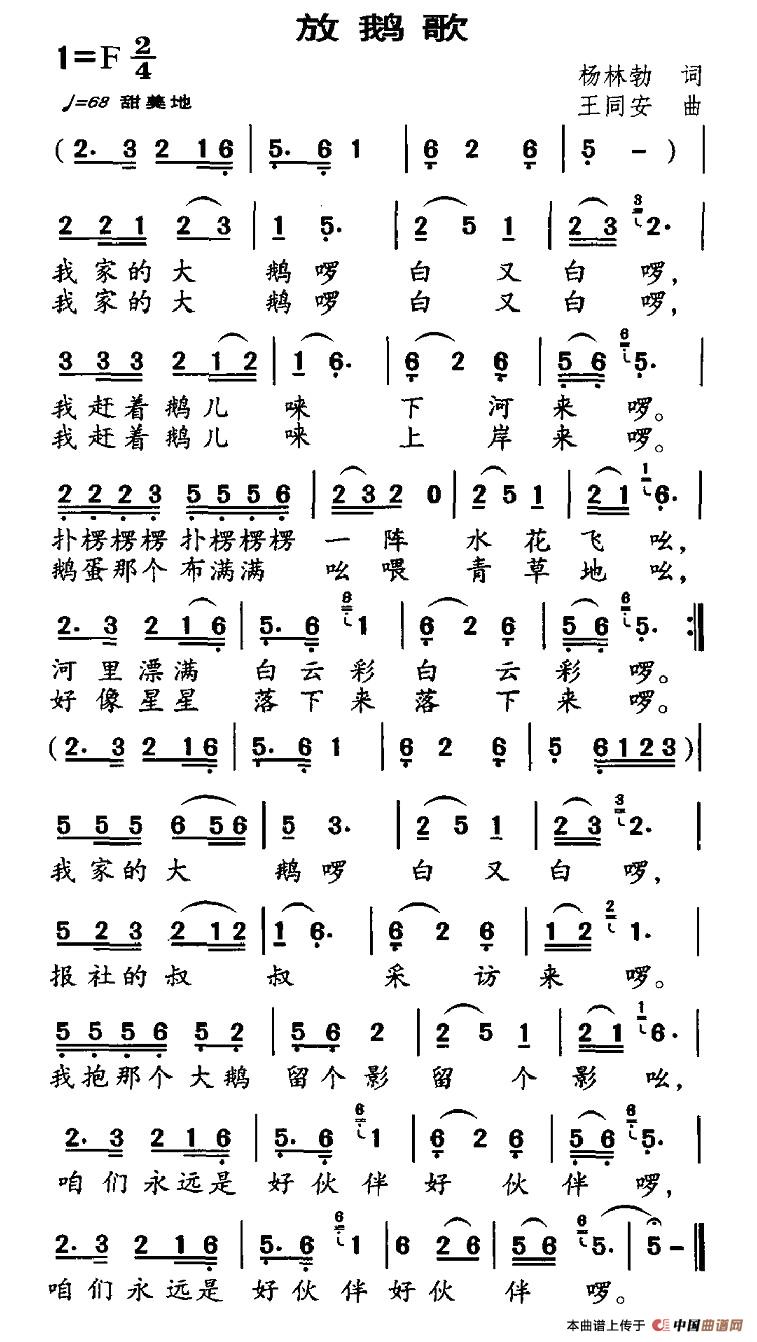 放鹅歌
1=F 2/4
杨林勃 词
♩=68 甜美地
王同安 曲
(2. 3 2 1 6 | 5. 6 1 | 6 2 6 | 5 - ) |
2 2 1 2 3 | 1 5. | 2 5 1 | 2 3 3 2. |
我家的大 鹅啰 白 又 白 啰,
我家的大 鹅啰 白 又 白 啰,
3 3 3 2 1 2 | 1 6. | 6 2 6 | 5 6 6 5. |
我赶着鹅儿 唻 下 河 来 啰。
我赶着鹅儿 唻 上 岸 来 啰。
2 2 2 3 5 5 5 6 | 2 3 2 0 | 2 5 1 | 2 1 1 6. |
扑楞楞楞 扑楞楞楞 一 阵 水 花 飞 吆,
鹅蛋那个 布满满 吆 喂 青 草 地 吆,
2. 3 2 1 6 | 5. 6 6 1 | 6 2 6 | 5 6 6 5. :||
河 里 漂满 白 云彩 白 云 彩 啰。
好 像 星星 落 下来 落 下 来 啰。
(2. 3 2 1 6 | 5. 6 1 | 6 2 6 | 5 6 1 2 3 ) |
5 5 5 6 5 6 | 5 3. | 2 5 1 | 2 3 3 2. |
我家的大 鹅啰 白 又 白 啰,
5 2 3 2 1 2 | 1 6. | 6 2 6 | 1 2 2 1. |
报社的叔 叔 采 访 来 啰。
5 5 5 6 5 2 | 5 6 2 | 2 5 1 | 2 1 1 6. |
我抱那个 大鹅 留个影 留 个 影 吆,
2. 3 2 1 6 | 5. 6 6 1 | 6 2 6 | 5 6 6 5. |
咱 们 永远是 好 伙 伴 好 伙 伴 啰,
2. 3 2 1 6 | 5. 6 6 1 | 6 2 6 | 5 6 6 5. | 5 - ||
咱 们 永远是 好 伙 伴 好 伙 伴 啰。
本曲谱上传于 中国曲谱网